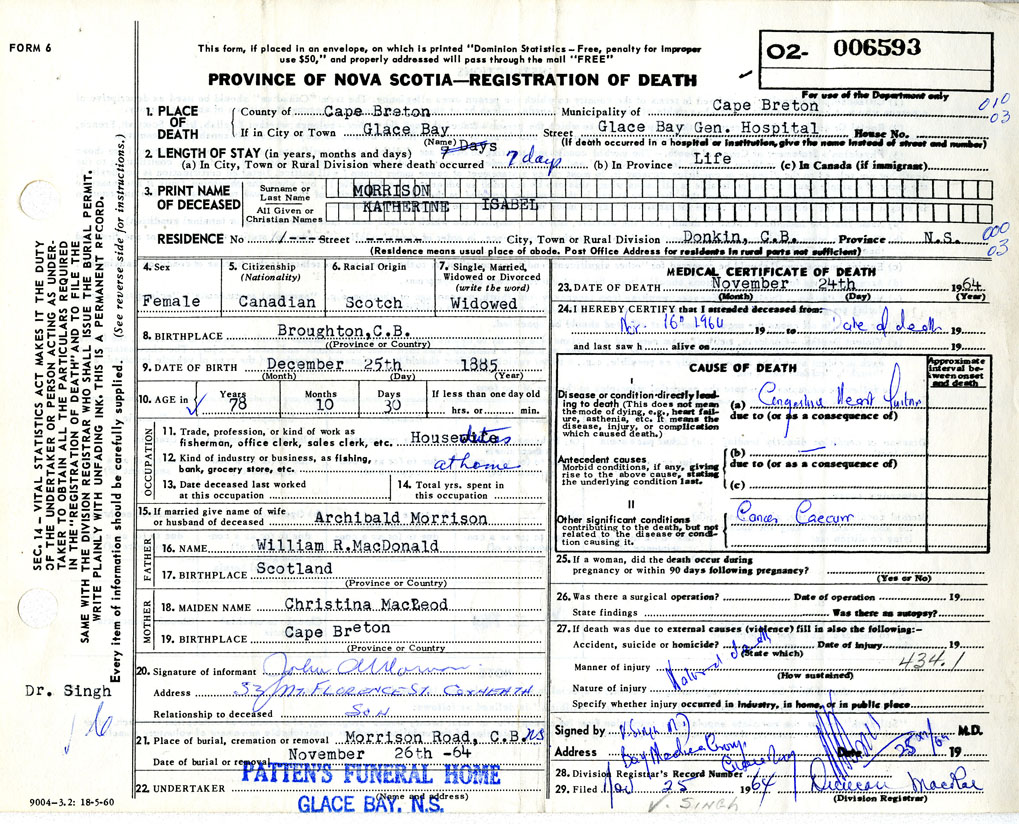 FORM 6
This form, if placed in an envelope, on which is printed "Dominion Statistics – Free, penalty for improper
use $50," and properly addressed will pass through the mail "FREE"
PROVINCE OF NOVA SCOTIA—REGISTRATION OF DEATH
02- 006593
For use of the Department only
010
03
1. PLACE OF DEATH
County of Cape Breton Municipality of Cape Breton
If in City or Town Glace Bay Street Glace Bay Gen. Hospital House No.
(Name) (If death occurred in a hospital or institution, give the name instead of street and number)
2. LENGTH OF STAY (in years, months and days) Days
(a) In City, Town or Rural Division where death occurred 7 days (b) In Province Life (c) In Canada (if immigrant)
3. PRINT NAME OF DECEASED
Surname or Last Name MORRISON
All Given or Christian Names KATHERINE ISABEL
RESIDENCE No Street City, Town or Rural Division Donkin, C.B. Province N.S.
000
03
(Residence means usual place of abode. Post Office Address for residents in rural parts not sufficient)
4. Sex Female
5. Citizenship (Nationality) Canadian
6. Racial Origin Scotch
7. Single, Married, Widowed or Divorced (write the word) Widowed
8. BIRTHPLACE Broughton,C.B.
((Province or Country)
9. DATE OF BIRTH December 25th 1885
(Month) (Day) (Year)
10. AGE in Years 78 Months 10 Days 30 If less than one day old hrs. or min.
OCCUPATION
11. Trade, profession, or kind of work as
fisherman, office clerk, sales clerk, etc. House duties
12. Kind of industry or business, as fishing,
bank, grocery store, etc. at home
13. Date deceased last worked
at this occupation
14. Total yrs. spent in
this occupation
15. If married give name of wife
or husband of deceased Archibald Morrison
FATHER
16. NAME William R.MacDonald
17. BIRTHPLACE Scotland
(Province or Country)
MOTHER
18. MAIDEN NAME Christina MacLeod
19. BIRTHPLACE Cape Breton
(Province or Country)
20. Signature of informant John A Morrison
Address 33 Mt. Florence St. Coxheath
Relationship to deceased Son
21. Place of burial, cremation or removal Morrison Road, C.B. NS
Date of burial or removal November 26th -64
22. UNDERTAKER
(Name and address)
PATTEN'S FUNERAL HOME
GLACE BAY, N.S.
9004-3.2: 18-5-60
MEDICAL CERTIFICATE OF DEATH
23. DATE OF DEATH November 24th 1964
(Month) (Day) (Year)
24. I HEREBY CERTIFY that I attended deceased from:
Nov. 16th 1964 19 to Date of death 19
and last saw h alive on 19
CAUSE OF DEATH
Approximate interval between onset and death
I
Disease or condition directly leading to death (This does not mean the mode of dying, e.g., heart failure, asthenia, etc. It means the disease, injury, or complication which caused death.)
(a) Congestive Heart Failure
due to (or as a consequence of)
Antecedent causes
Morbid conditions, if any, giving rise to the above cause, stating the underlying condition last.
(b)
due to (or as a consequence of)
(c)
II
Other significant conditions
contributing to the death, but not related to the disease or condition causing it.
Cancer Caecum
25. If a woman, did the death occur during
pregnancy or within 90 days following pregnancy?
(Yes or No)
26. Was there a surgical operation? Date of operation 19
State findings Was there an autopsy?
27. If death was due to external causes (violence) fill in also the following:–
Accident, suicide or homicide? Date of injury 19
(State which)
434.1
Manner of injury Natural death
(How sustained)
Nature of injury
Specify whether injury occurred in industry, in home, or in public place
Signed by V. Singh M.D. M.D.
Address Glace Bay Date 25 19
28. Division Registrar's Record Number
29. Filed Nov 25 1964 Duncan MacRae
(Division Registrar)
V. SINGH
SEC. 14 – VITAL STATISTICS ACT MAKES IT THE DUTY
OF THE UNDERTAKER OR PERSON ACTING AS UNDER-
TAKER TO OBTAIN ALL THE PARTICULARS REQUIRED
IN THE "REGISTRATION OF DEATH" AND TO FILE THE
SAME WITH THE DIVISION REGISTRAR WHO SHALL ISSUE THE BURIAL PERMIT.
WRITE PLAINLY WITH UNFADING INK. THIS IS A PERMANENT RECORD.
Every item of information should be carefully supplied. (See reverse side for instructions.)
Dr. Singh